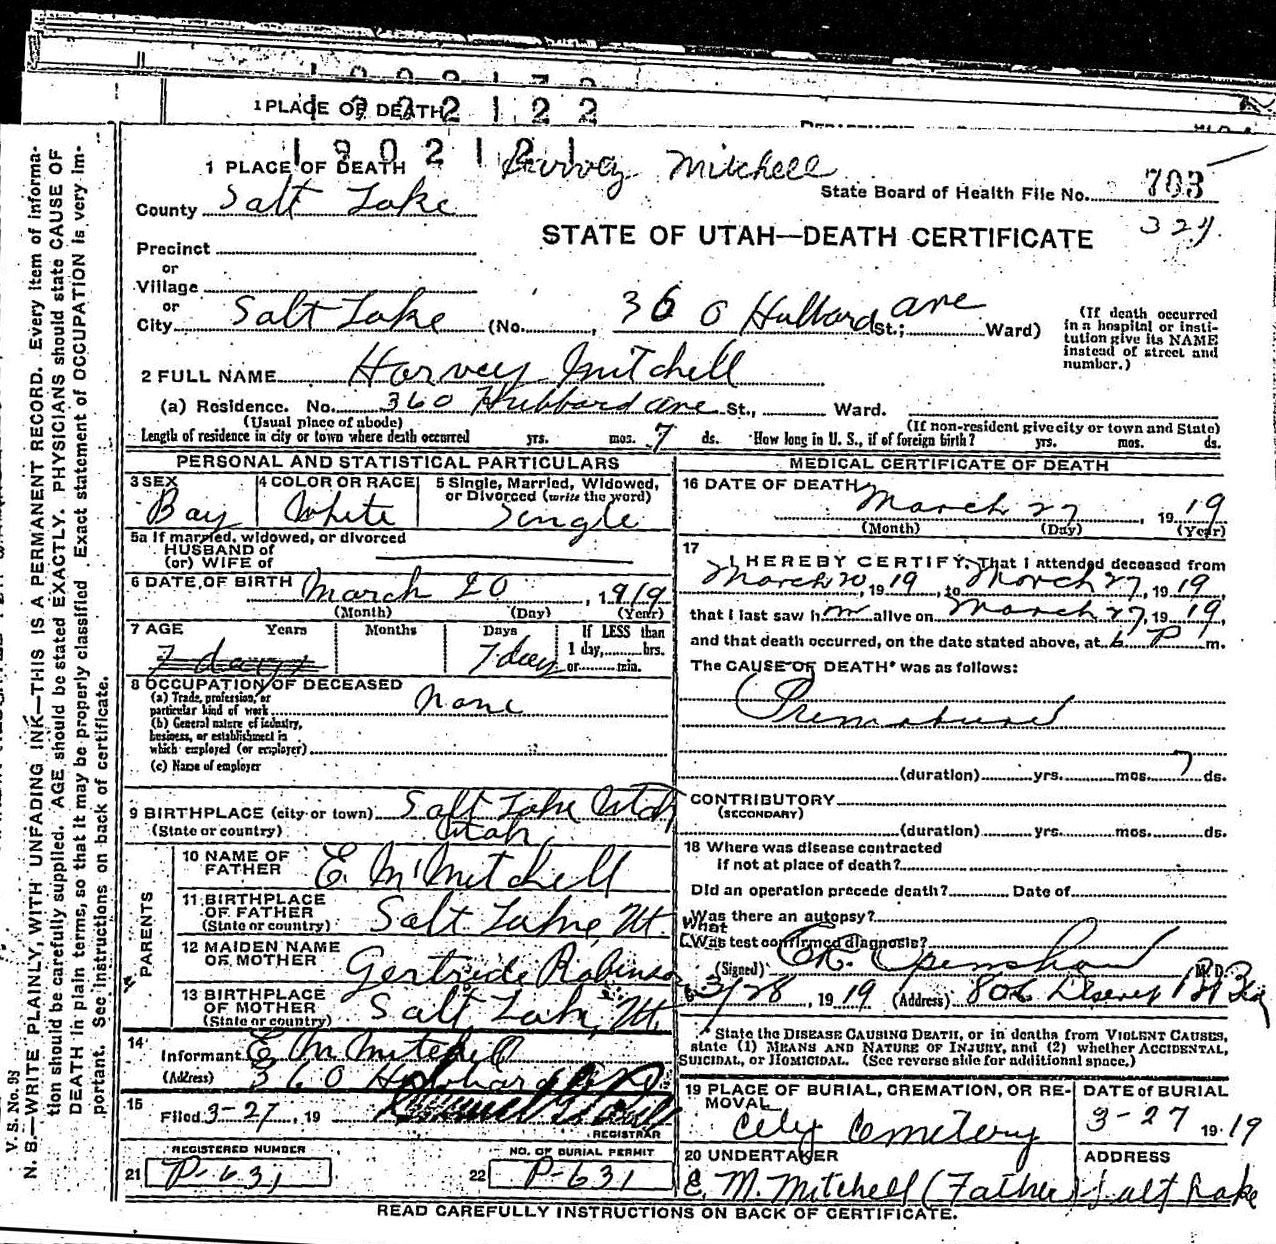 1 PLACE OF DEATH
1902122
1902121
Harvey Mitchell
1 PLACE OF DEATH
State Board of Health File No. 703
324
County Salt Lake
STATE OF UTAH—DEATH CERTIFICATE
Precinct
or
Village
or
City Salt Lake (No. , 360 Hubbard ave St.; Ward)
(If death occurred in a hospital or institution give its NAME instead of street and number.)
2 FULL NAME Harvey Mitchell
(a) Residence. No. 360 Hubbard ave St., Ward.
(Usual place of abode) (If non-resident give city or town and State)
Length of residence in city or town where death occurred yrs. mos. 7 ds. How long in U. S., if of foreign birth? yrs. mos. ds.
PERSONAL AND STATISTICAL PARTICULARS
3 SEX
Boy
4 COLOR OR RACE
White
5 Single, Married, Widowed, or Divorced (write the word)
Single
5a If married, widowed, or divorced
HUSBAND of
(or) WIFE of
6 DATE OF BIRTH March 20, 1919
(Month) (Day) (Year)
7 AGE Years Months Days If LESS than
7 days 7 days 1 day, hrs.
or min.
8 OCCUPATION OF DECEASED
(a) Trade, profession, or particular kind of work None
(b) General nature of industry, business, or establishment in which employed (or employer)
(c) Name of employer
9 BIRTHPLACE (city or town) Salt Lake Utah
(State or country) Utah
PARENTS
10 NAME OF FATHER E. M Mitchell
11 BIRTHPLACE OF FATHER (State or country) Salt Lake, Ut.
12 MAIDEN NAME OF MOTHER Gertrude Robinson
13 BIRTHPLACE OF MOTHER (State or country) Salt Lake, Ut.
14
Informant E M Mitchell
(Address) 360 Hubbard
15
Filed 3-27, 19
REGISTRAR
REGISTERED NUMBER
21 P-631
NO. OF BURIAL PERMIT
22 P-631
MEDICAL CERTIFICATE OF DEATH
16 DATE OF DEATH
March 27, 1919
(Month) (Day) (Year)
17
I HEREBY CERTIFY, That I attended deceased from
March 20, 1919, to March 27, 1919,
that I last saw h m alive on March 27, 1919,
and that death occurred, on the date stated above, at 6 P m.
The CAUSE OF DEATH* was as follows:
Premature
(duration) yrs. mos. 7 ds.
CONTRIBUTORY
(SECONDARY)
(duration) yrs. mos. ds.
18 Where was disease contracted
if not at place of death?
Did an operation precede death? Date of
Was there an autopsy?
What
Was test confirmed diagnosis?
(Signed) Openshaw M. D.
3/28, 1919 (Address) 806 Deseret Bk
* State the DISEASE CAUSING DEATH, or in deaths from VIOLENT CAUSES,
state (1) MEANS AND NATURE OF INJURY, and (2) whether ACCIDENTAL,
SUICIDAL, or HOMICIDAL. (See reverse side for additional space.)
19 PLACE OF BURIAL, CREMATION, OR REMOVAL
City Cemetery
DATE of BURIAL
3-27 1919
20 UNDERTAKER
E. M. Mitchell (Father)
ADDRESS
Salt Lake
READ CAREFULLY INSTRUCTIONS ON BACK OF CERTIFICATE.
V. S. No. 98
N. B.—WRITE PLAINLY, WITH UNFADING INK—THIS IS A PERMANENT RECORD. Every item of informa-
tion should be carefully supplied. AGE should be stated EXACTLY. PHYSICIANS should state CAUSE OF
DEATH in plain terms, so that it may be properly classified. Exact statement of OCCUPATION is very im-
portant. See instructions on back of certificate.